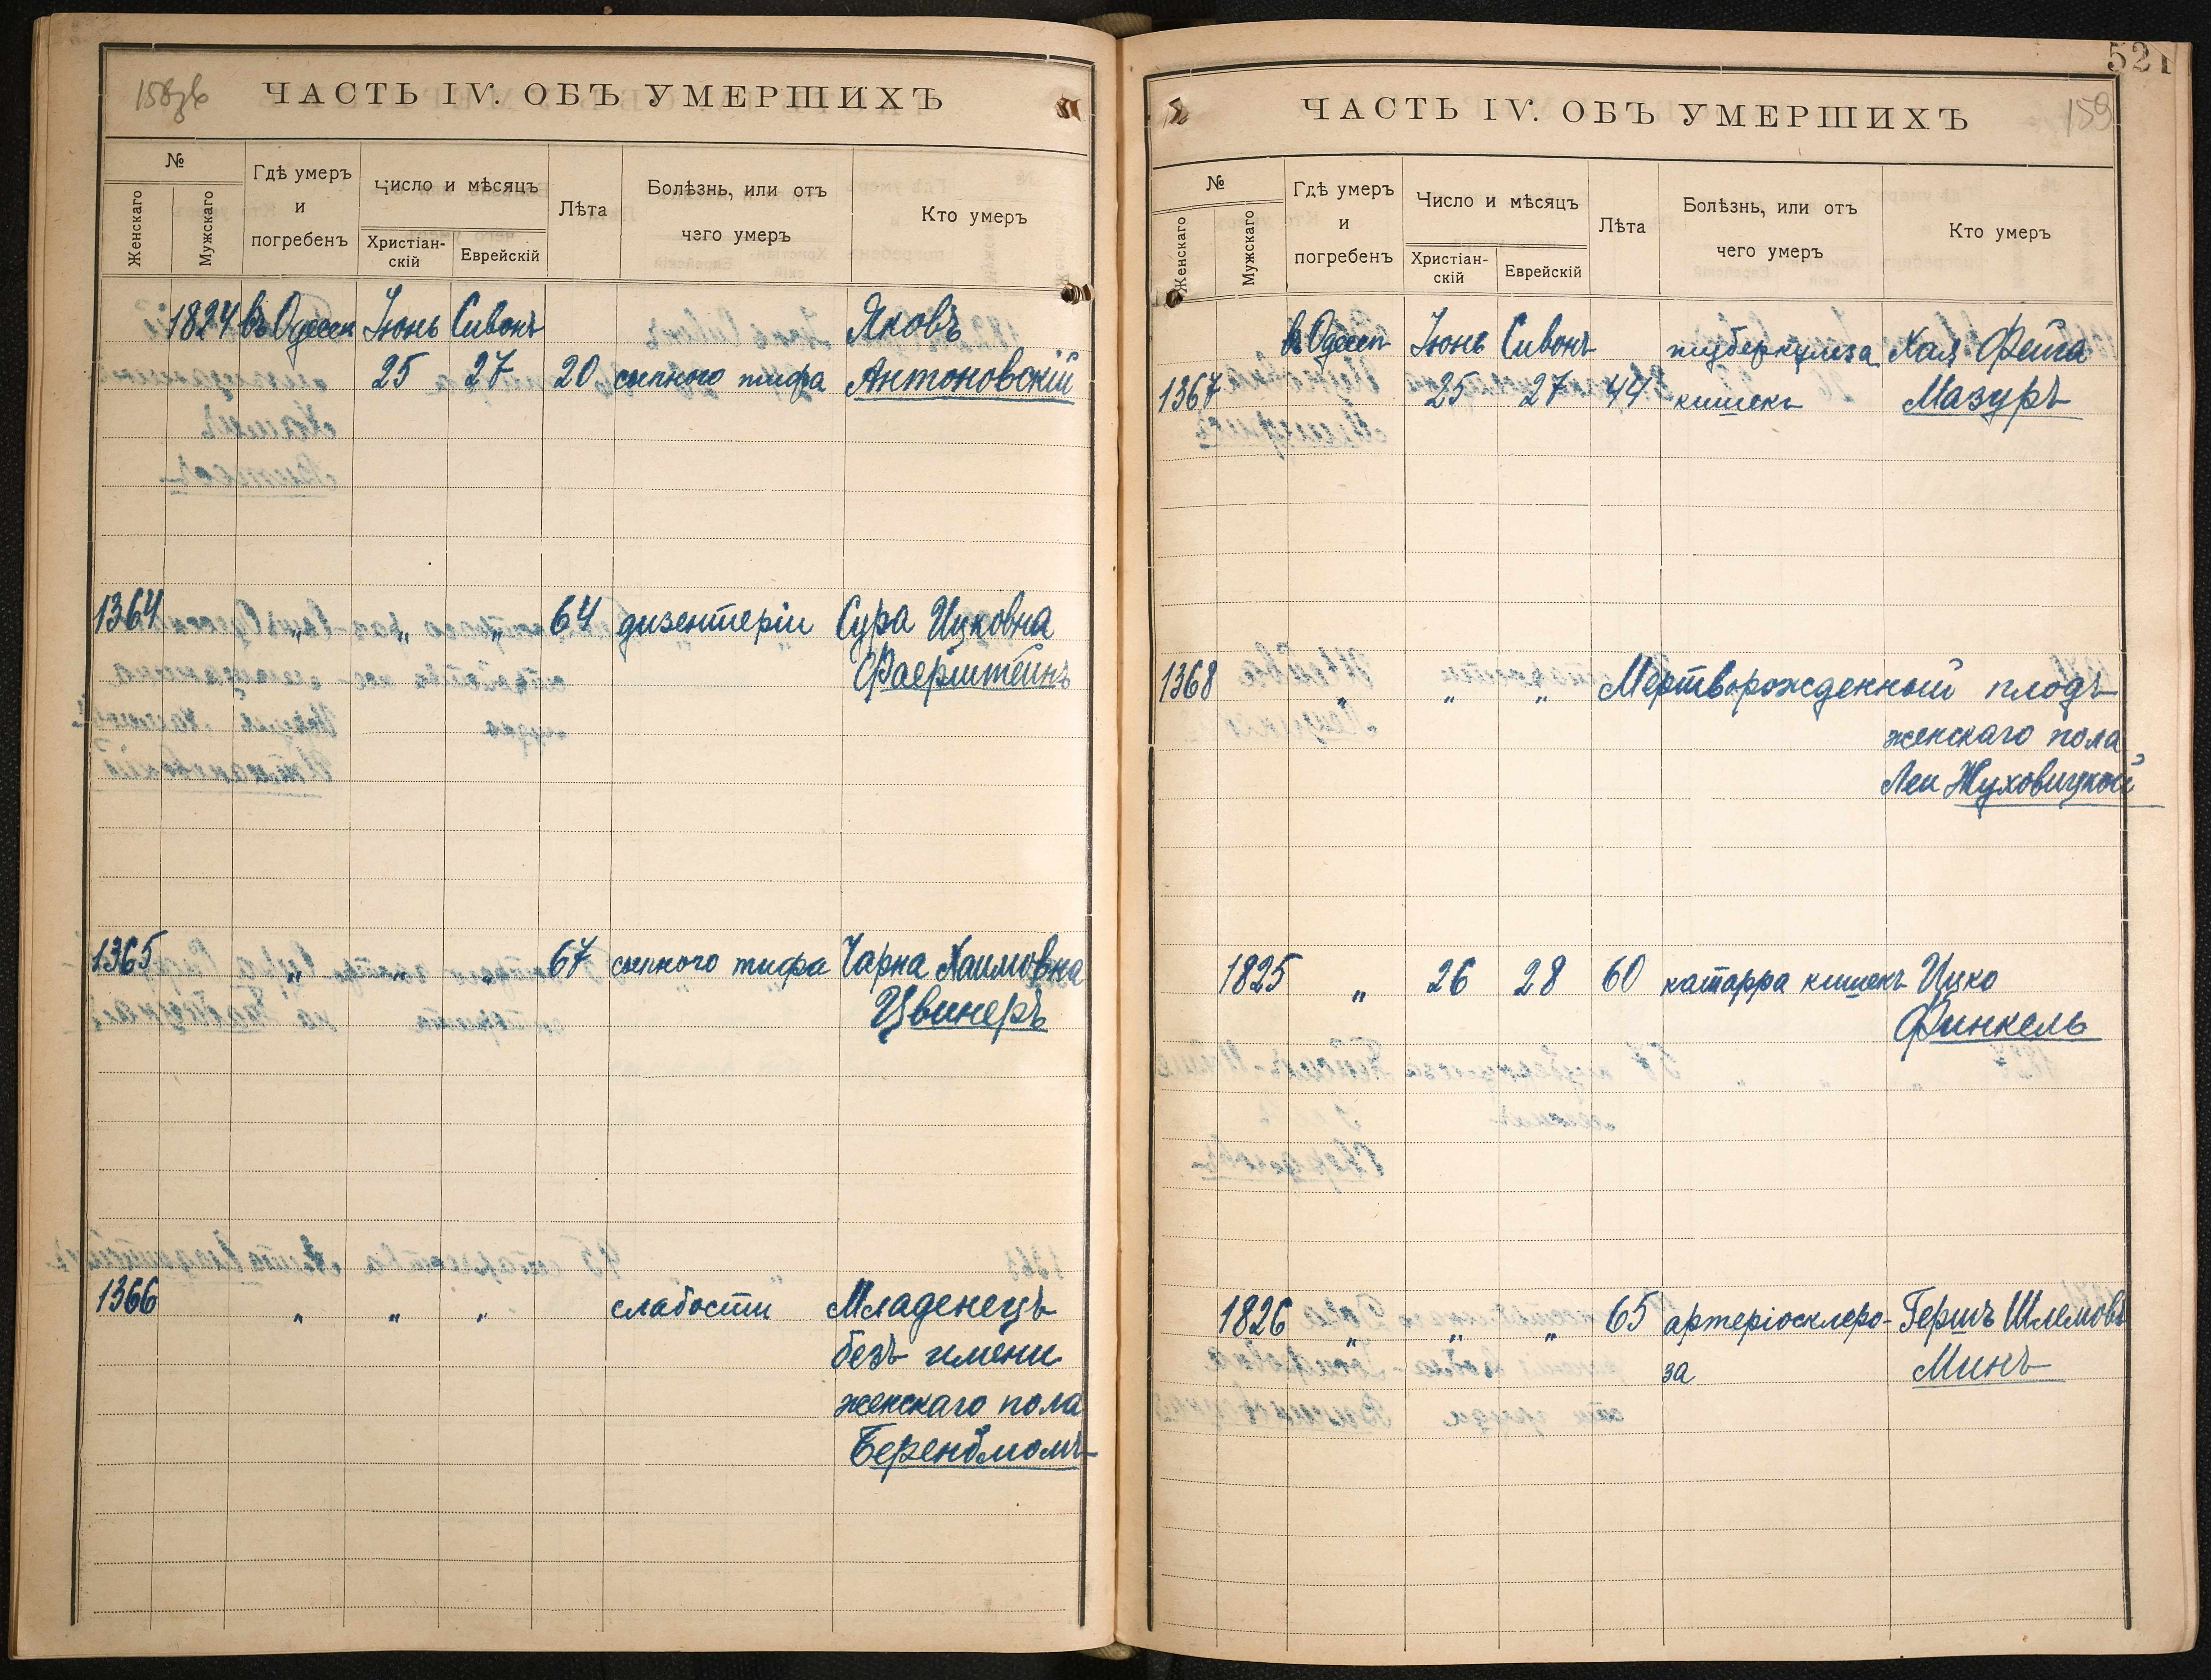 158зв
ЧАСТЬ IV. ОБЪ УМЕРШИХЪ
№
Женскаго
Мужскаго
Гдѣ умеръ
и
погребенъ
Число и мѣсяцъ
Христіан-
скій
Еврейскій
Лѣта
Болѣзнь, или отъ
чего умеръ
Кто умеръ
1824 въ Одессѣ Іюнь Сивонъ Яковъ
25 27 20 сыпного тифа Антоновскій
1364 " " " 64 дизентеріи Сура Ицковна
Фаерштейнъ
1365 " " " 67 сыпного тифа Чарна Хаимовна
Цвинеръ
1366 " " " слабости Младенецъ
безъ имени
женскаго пола
Беренблюмъ
521
159
ЧАСТЬ IV. ОБЪ УМЕРШИХЪ
№
Женскаго
Мужскаго
Гдѣ умеръ
и
погребенъ
Число и мѣсяцъ
Христіан-
скій
Еврейскій
Лѣта
Болѣзнь, или отъ
чего умеръ
Кто умеръ
въ Одессѣ Іюнь Сивонъ туберкулеза Хая Фейга
1367 25 27 44 кишекъ Мазуръ
1368 " " " Мертворожденный плодъ
женскаго пола
Леи Жуховицкой
1825 " 26 28 60 катарра кишекъ Ицко
Финкель
1826 " " " 65 артеріосклеро- Гершъ Шлемовъ
за Минъ